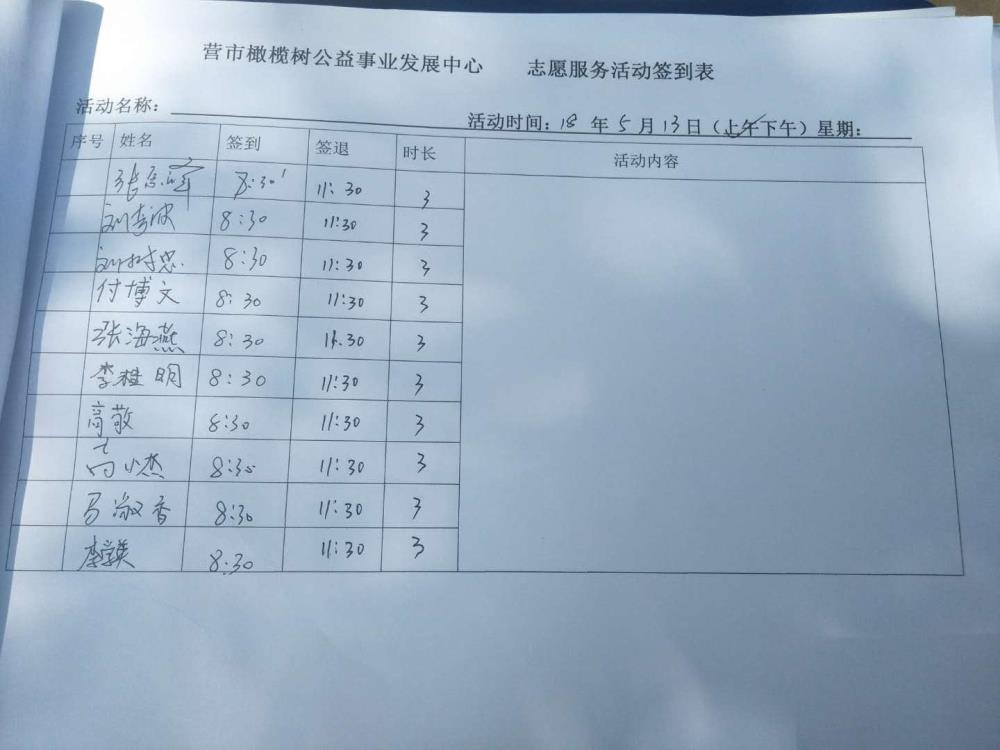 营市橄榄树公益事业发展中心 志愿服务活动签到表
活动名称： 活动时间：18 年 5 月 13 日（上午下午）星期：
序号 姓名 签到 签退 时长 活动内容
8:30 11:30 3
8:30 11:30 3
刘树忠 8:30 11:30 3
付博文 8:30 11:30 3
张海燕 8:30 11.30 3
李桂明 8:30 11:30 3
高敬 8:30 11:30 3
高小杰 8:30 11:30 3
马淑香 8:30 11:30 3
8:30 11:30 3